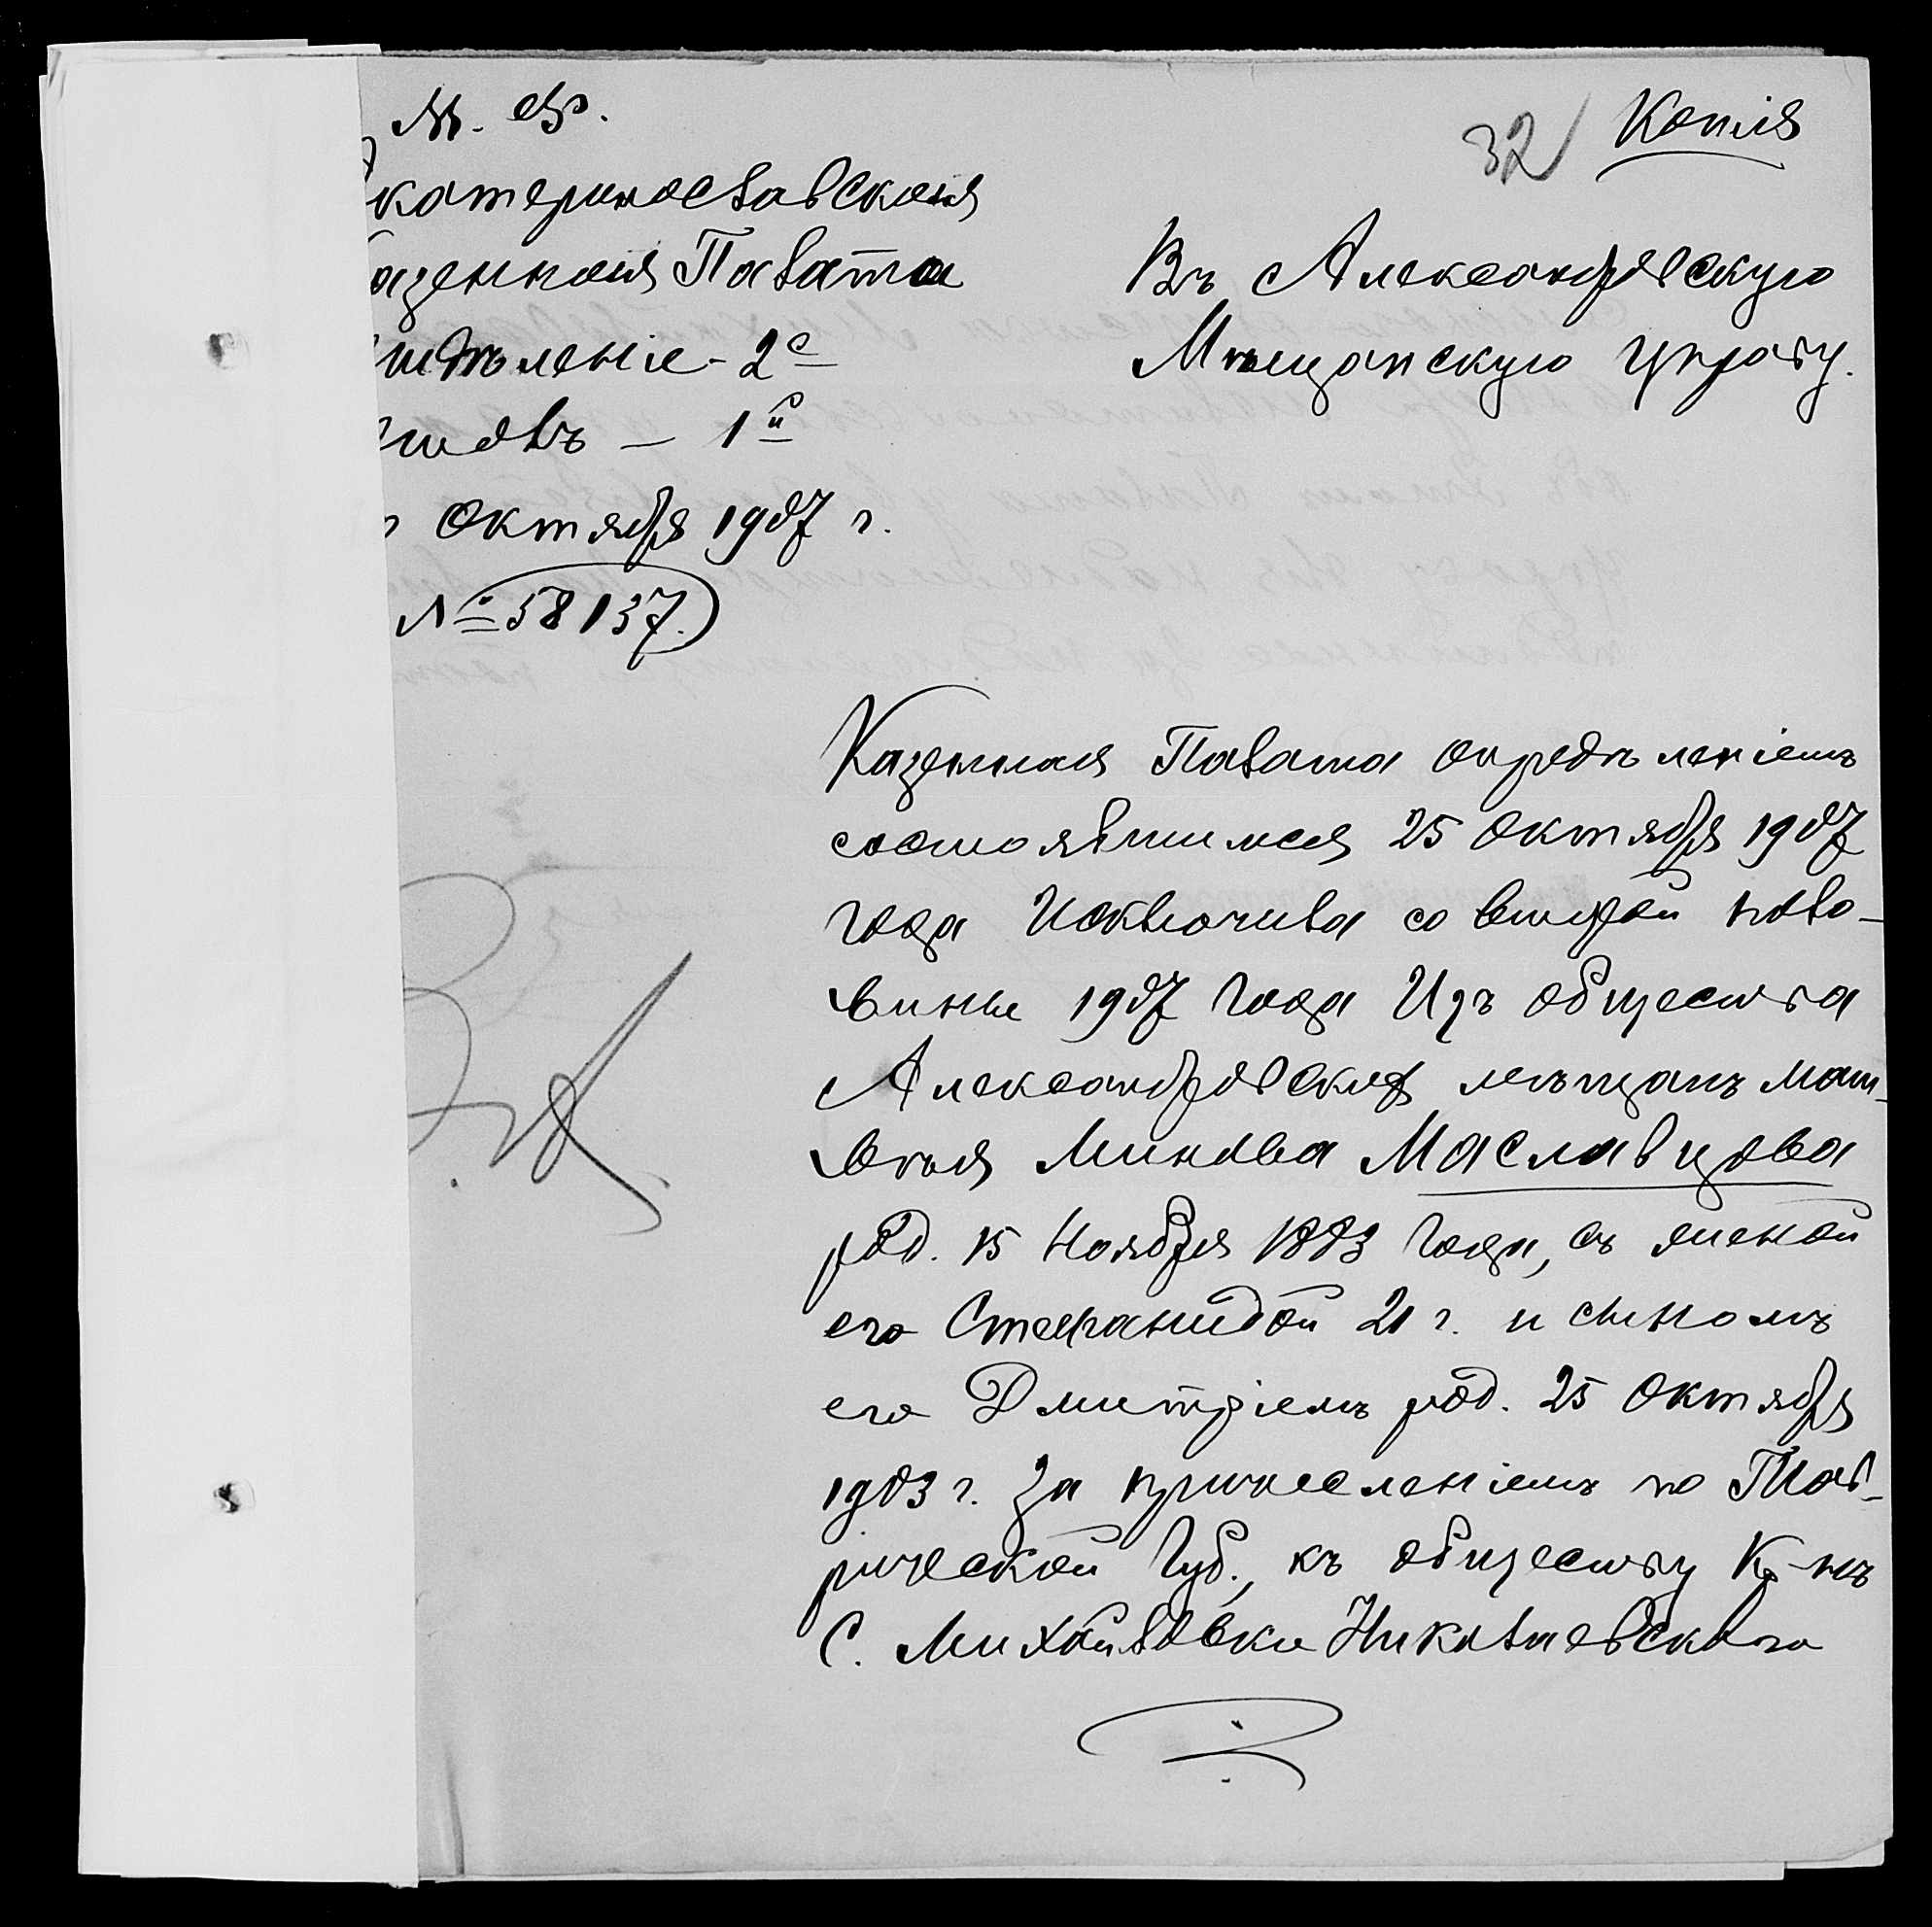 М. Ф.
32 Копія
катеринославская
азенная Палата
Въ Александровскую
дѣленіе - 2е
Мѣщанскую Управу.
толъ - 1й
Октября 1907 г.
№ 58137.
Казенная Палата опредѣленіемъ
состоявшимся 25 Октября 1907
года исключила со второй поло-
вины 1907 года изъ общества
Александровских мѣщанъ Мат-
вѣя Минова Маславцова
род. 15 Ноября 1883 года, съ женой
его Стефанидой 21 г. и сыномъ
его Дмитріемъ род. 25 Октября
1903 г. за причисленіемъ по Тав-
рической Губ., къ обществу Кр-нъ
С. Михайловки Николаевскаго